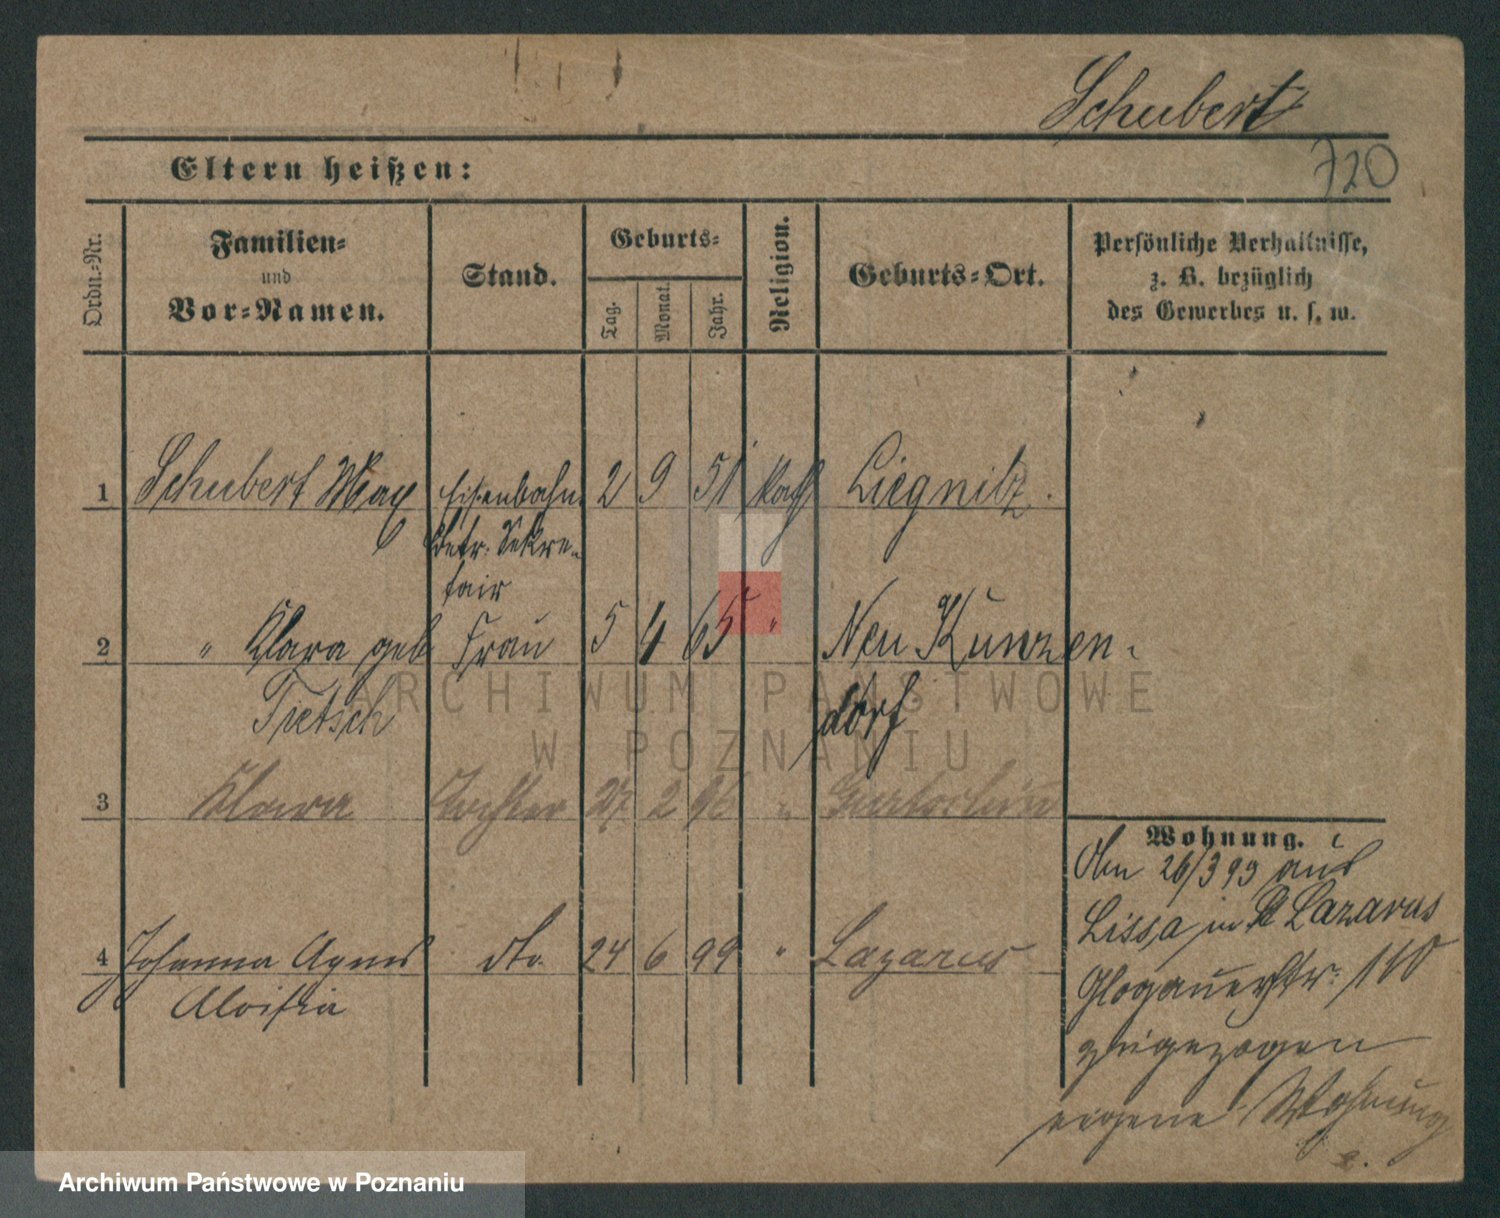 Schubert
720
Eltern heißen:
Ordn.-Nr.
Familien-
und
Vor-Namen.
Stand.
Geburts-
Tag.
Monat.
Jahr.
Religion.
Geburts-Ort.
Persönliche Verhältnisse,
z. B. bezüglich
des Gewerbes u. s. w.
1 Schubert Max Eisenbahn- 2 9 51 kath Liegnitz.
Betr. Sekre-
tair
2 " Klara geb Frau 5 4 65 " Neu Kunzen-
Tietsch
dorf
3 Klara Tochter 27 2 96 "
4 Johanna Agnes dto. 24 6 99 " Lazarus
Aloisia
Wohnung.
Am 26/3 99 aus
Lissa in St Lazarus
Glogauerstr. 110
zugezogen
eigene Wohnung
ARCHIWUM PAŃSTWOWE
W POZNANIU
Archiwum Państwowe w Poznaniu